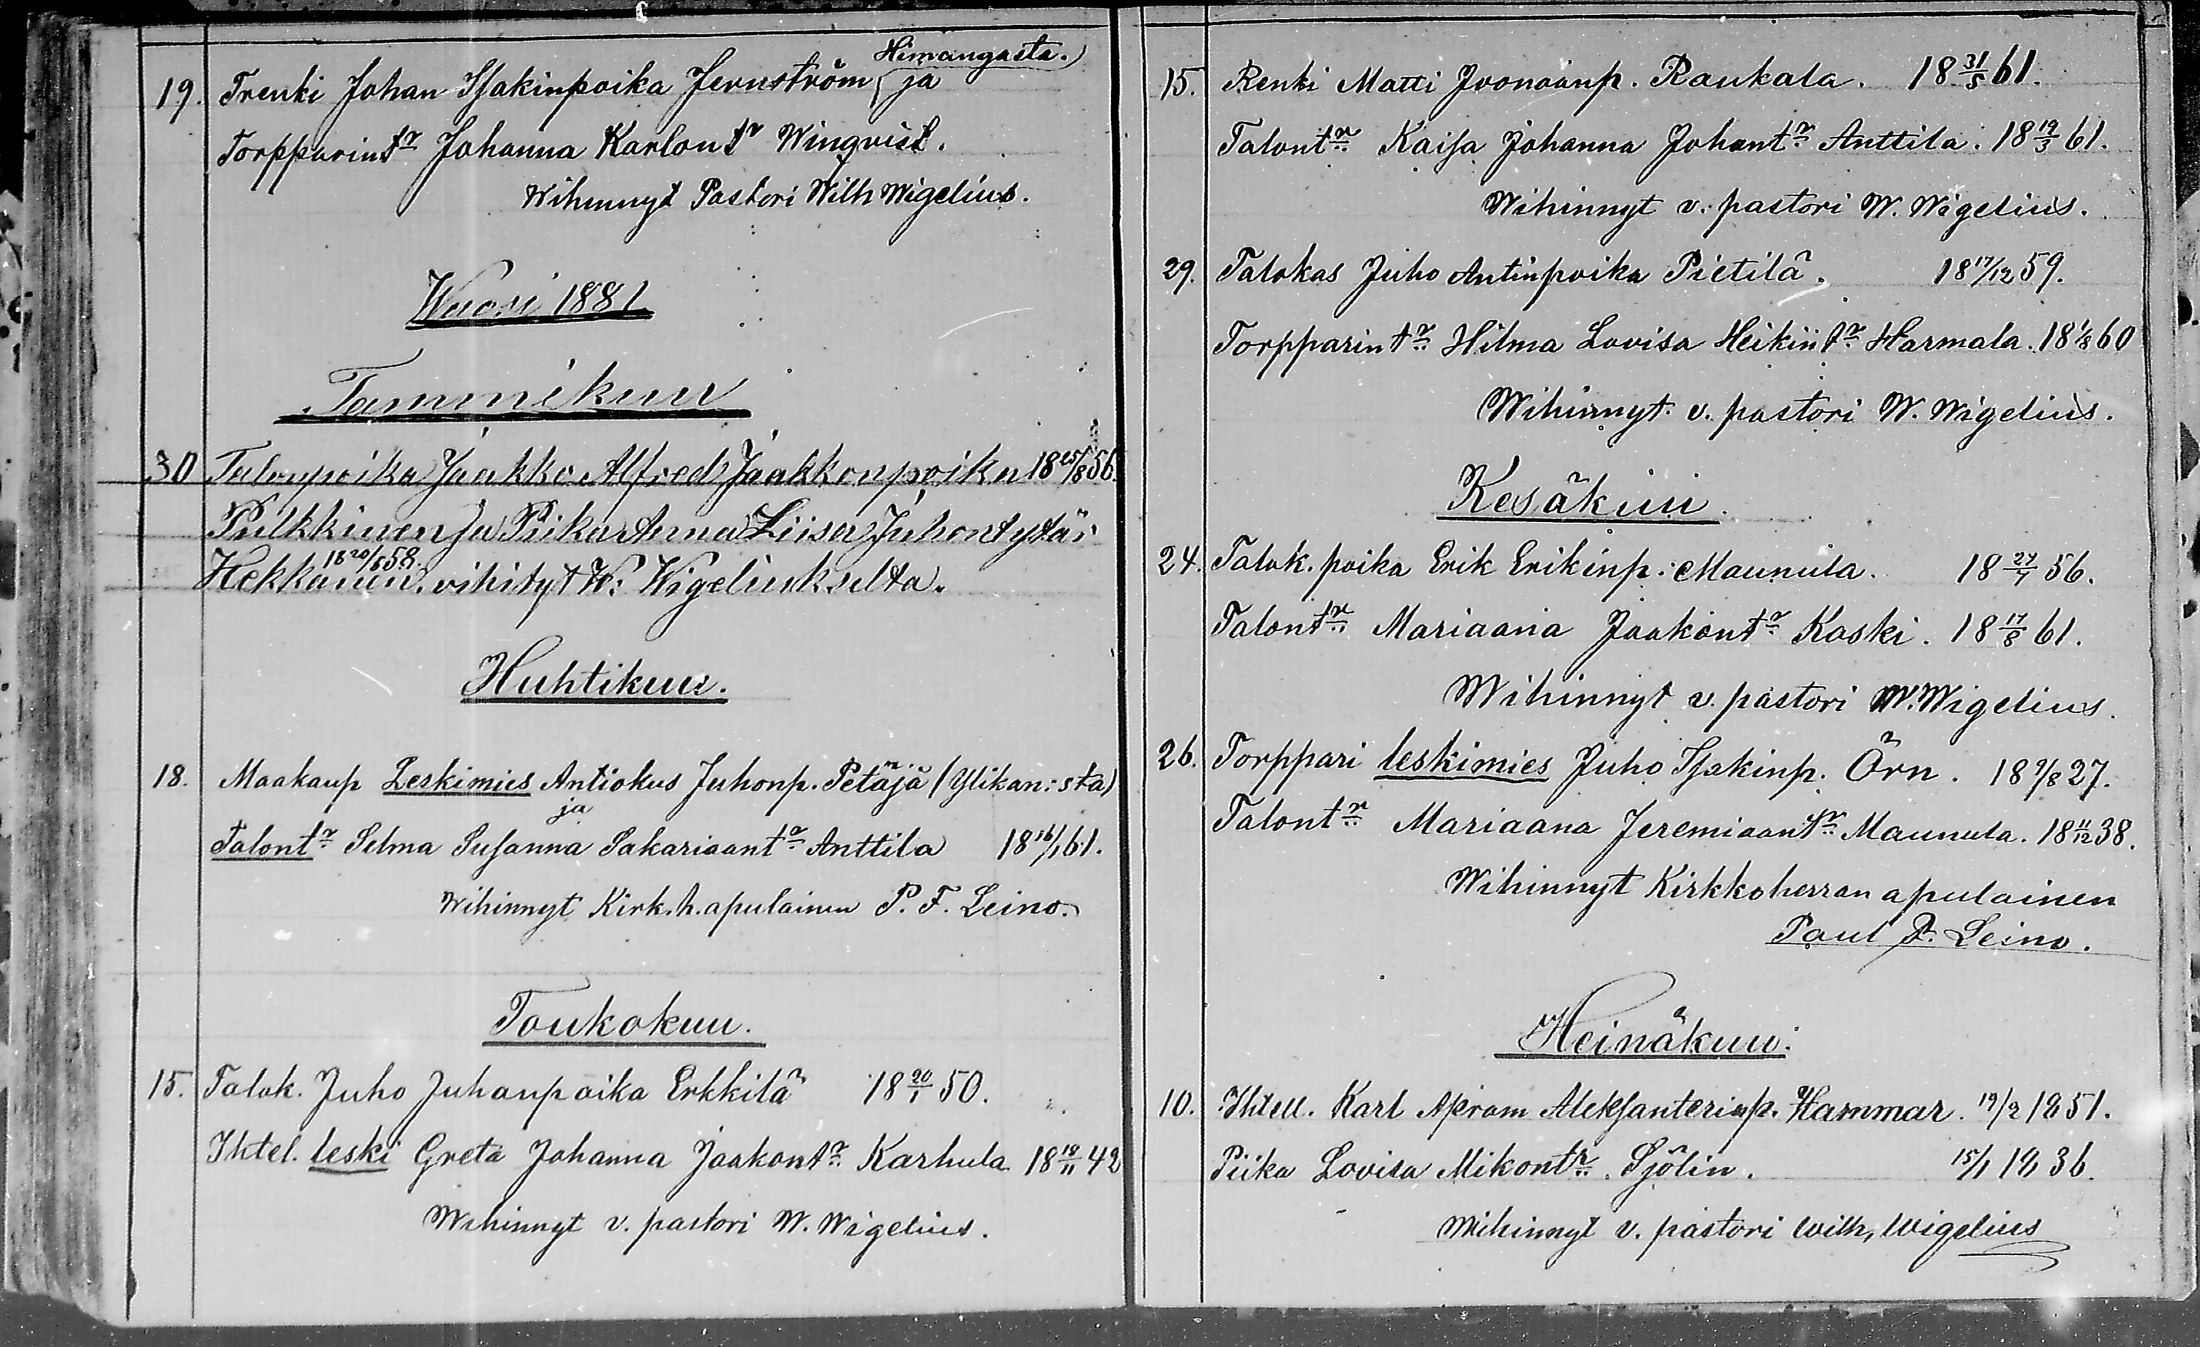 Himangasta.)
19. Trenki Johan Isakinpoika Jernström ja
Torpparintr Johanna Karlontr Winqvist.
Wihinnyt Pastori Wilh Wigelius.
Wuosi 1881
Tammikuu
30 Talonpoika Jaakko Alfred Jaakkonpoika 18 25/8 56.
Pulkkinen ja Piika Anna Liisa Juhontytär
18 20/5 58.
Hekkanen. vihityt W. Wigeliukselta.
Huhtikuu.
18. Maakaup Leskimies Antiokus Juhonp. Petäjä (Ylikan:sta)
ja
Talontr Selma Susanna Sakariaantr Anttila 18 16/1 61.
Wihinnyt Kirk.h.apulainen P. F. Leino.
Toukokuu.
15. Talok. Juho Juhanpoika Erkkilä 18 20/1 50.
Ihtel. leski Greta Johanna Jaakontr Karhula 18 18/11 42
Wihinnyt v. pastori W. Wigelius.
15. Renki Matti Joonaanp. Raukala. 18 31/5 61.
Talontr Kaisa Johanna Johantr Anttila. 18 19/3 61.
Wihinnyt v. pastori W. Wigelius.
29. Talokas Juho Antinpoika Pietilä. 18 17/12 59.
Torpparintr Hilma Lovisa Heikintr Harmala. 18 1/8 60
Wihinnyt v. pastori W. Wigelius.
Kesäkuu.
24. Talok. poika Erik Erikinp. Maunula. 18 27/7 56.
Talontr Mariaana Jaakontr Koski. 18 17/8 61.
Wihinnyt v. pastori W. Wigelius.
26. Torppari leskimies Juho Isakinp. Örn. 18 9/8 27.
Talontr Mariaana Jeremiaantr Maunula. 18 11/12 38.
Wihinnyt Kirkkoherran apulainen
Paul F. Leino.
Heinäkuu.
10. Ihtell. Karl Apram Aleksanterinp. Hammar. 19/2 1851.
Piika Lovisa Mikontr Sjölin. 15/1 1836.
Wihinnyt v. pastori Wilh, Wigelius